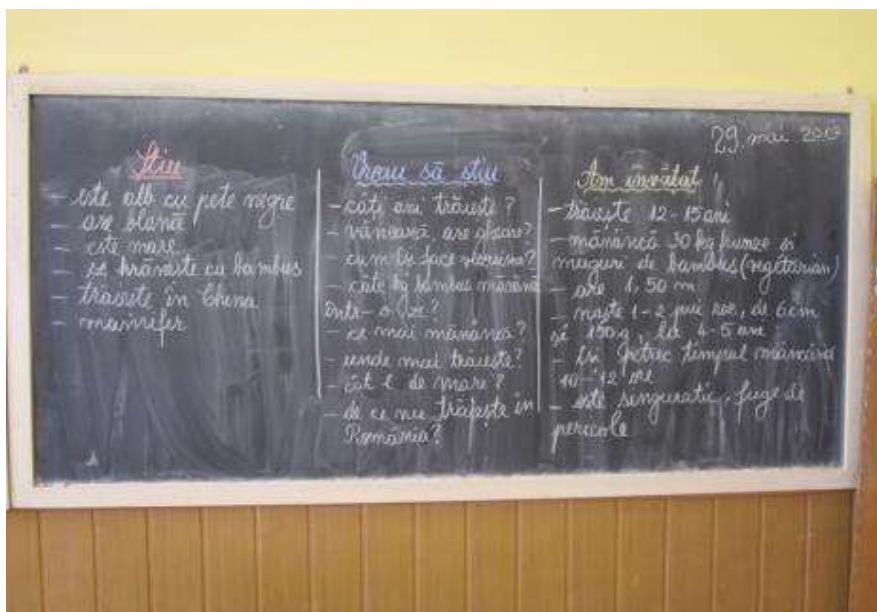 29 mai 2013
Știu
- este alb cu pete negre
- are blană
- este mare
- se hrănește cu bambus
- trăiește în China
- mamifer
Vreau să știu
- câți ani trăiește?
- vânează are gheare?
- cum își face
- câte kg bambus mănâncă
într-o zi?
- ce mai mănâncă?
- unde mai trăiește?
- cât e de mare?
- de ce nu trăiește în
România?
Am învățat
- trăiește 12-15 ani
- mănâncă 30 kg frunze și
muguri de bambus (vegetarian)
- are 1,50 m
- naște 1-2 pui roz, de 6 cm
și 150 g, la 4-5 ani
- își petrec timpul mâncând
10-12 ore
- este singuratic, fuge de
pericole